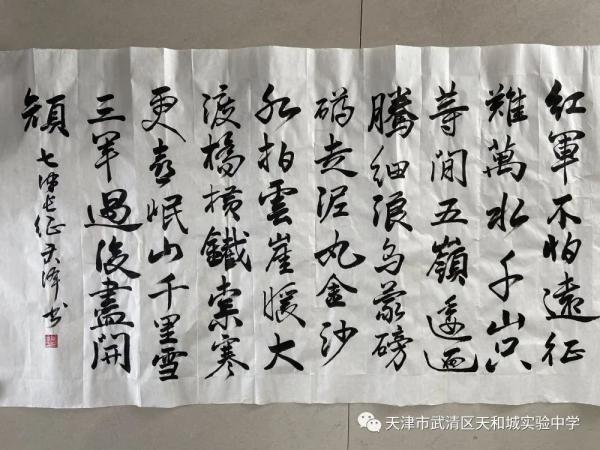 紅軍不怕遠征
難萬水千山只
等間五嶺逶迤
騰細浪烏蒙磅
礴走泥丸金沙
水拍雲崖暖大
渡橋橫鐵索寒
更喜岷山千里雪
三軍過後盡開
顏
七律长征 书
天津市武清区天和城实验中学